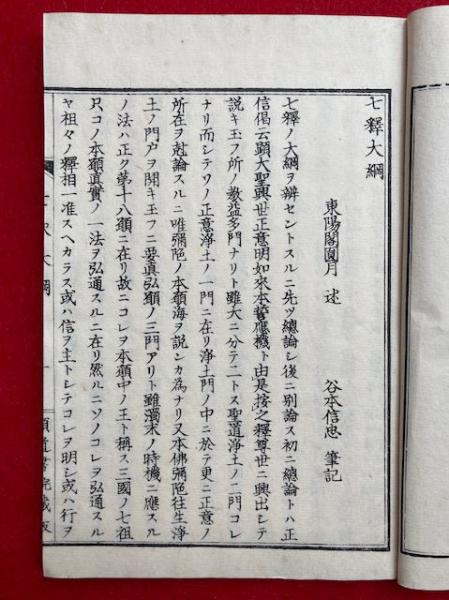 七釋大綱
東陽閣圓月 述 谷本信忠 筆記
七釋ノ大綱ヲ辨セントスルニ先ツ總論シ後ニ別論ス初ニ總論トハ正
信偈云顯大聖興世正意明如來本誓應機ト由是按之釋尊世ニ興出シテ
説キ玉フ所ノ教益多門ナリト雖大ニ分テ二トス聖道淨土ノ二門コレ
ナリ而シテソノ正意淨土ノ一門ニ在リ淨土門ノ中ニ於テ更ニ正意ノ
所在ヲ尅論スルニ唯彌陀ノ本願海ヲ説ンカ為ナリ又本佛彌陀往生淨
土ノ門戸ヲ開キ玉フニ要眞弘願ノ三門アリト雖濁末ノ時機ニ應スル
ノ法ハ正ク第十八願ニ在リ故ニコレヲ本願中ノ王ト稱ス三國ノ七祖
只コノ本願眞實ノ一法ヲ弘通スルニ在リ然ルニソノコレヲ弘通スル
ヤ祖々ノ釋相一准スヘカラス或ハ信ヲ主トシテコレヲ明シ或ハ行ヲ
大綱
一